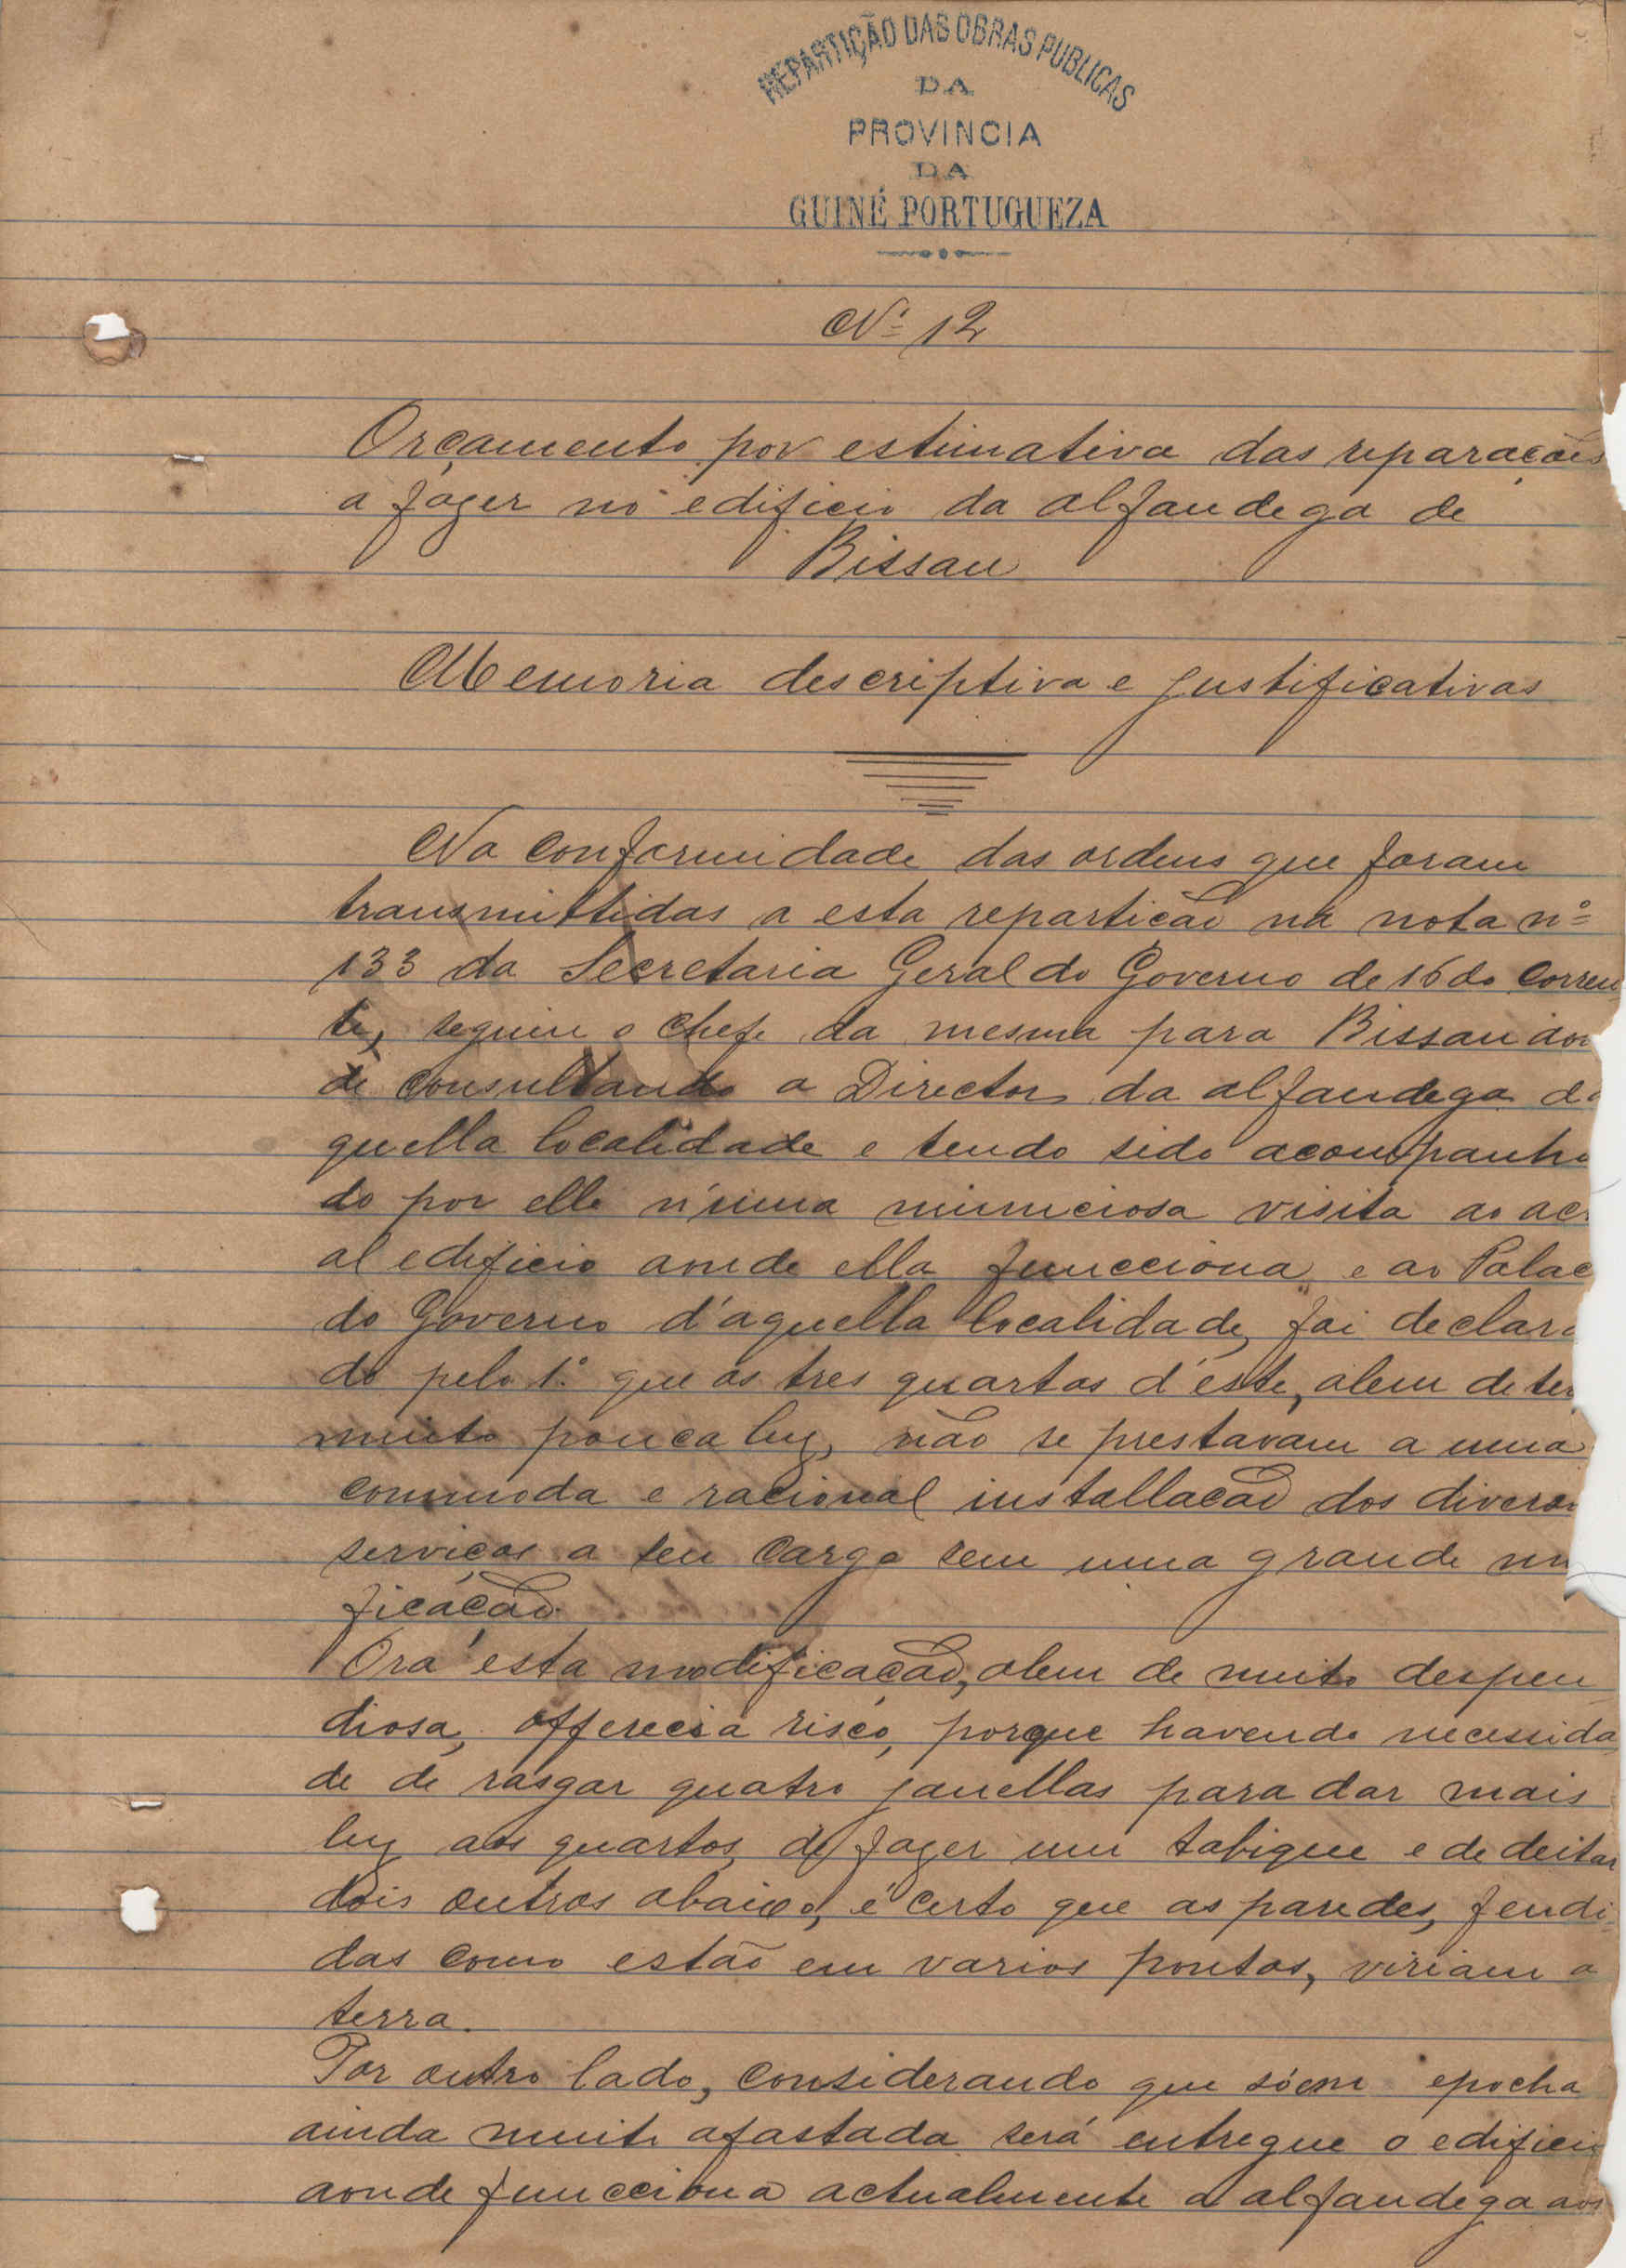 REPARTIÇÃO DAS OBRAS PUBLICAS
DA
PROVINCIA
DA
GUINÉ PORTUGUEZA
Nº 12
Orçamento por estimativa das reparações
a fazer no edificio da alfandega de
Bissau
Memoria descriptiva e justificativas
Na conformidade das ordens que foram
transmittidas a esta repartição na nota nº
133 da Secretaria Geral do Governo de 16 do corren
te, seguiu o chefe da mesma para Bissau aon
de consultando o Director da alfandega da
quella localidade e tendo sido acompanha
do por elle n'uma minuciosa visita ao actu
al edificio aonde ella funcciona e ao Palac
do Governo d'aquella localidade, foi declara
do pelo 1º que os tres quartos d'este, alem de ter
muito pouca luz, não se prestavam a uma
commoda e racional installação dos diversos
serviços a seu cargo sem uma grande
ficação.
Ora esta modificação, alem de muito despen
diosa, offerecia risco, porque havendo necessida
de de rasgar quatro janellas para dar mais
luz aos quartos, de fazer um tabique e de deitar
dois outros abaixo, é certo que as paredes, fendi
das como estão em varios pontos, viriam a
terra.
Por outro lado, considerando que só em epocha
ainda muito afastada será entregue o edificio
aonde funcciona actualmente a alfandega aos